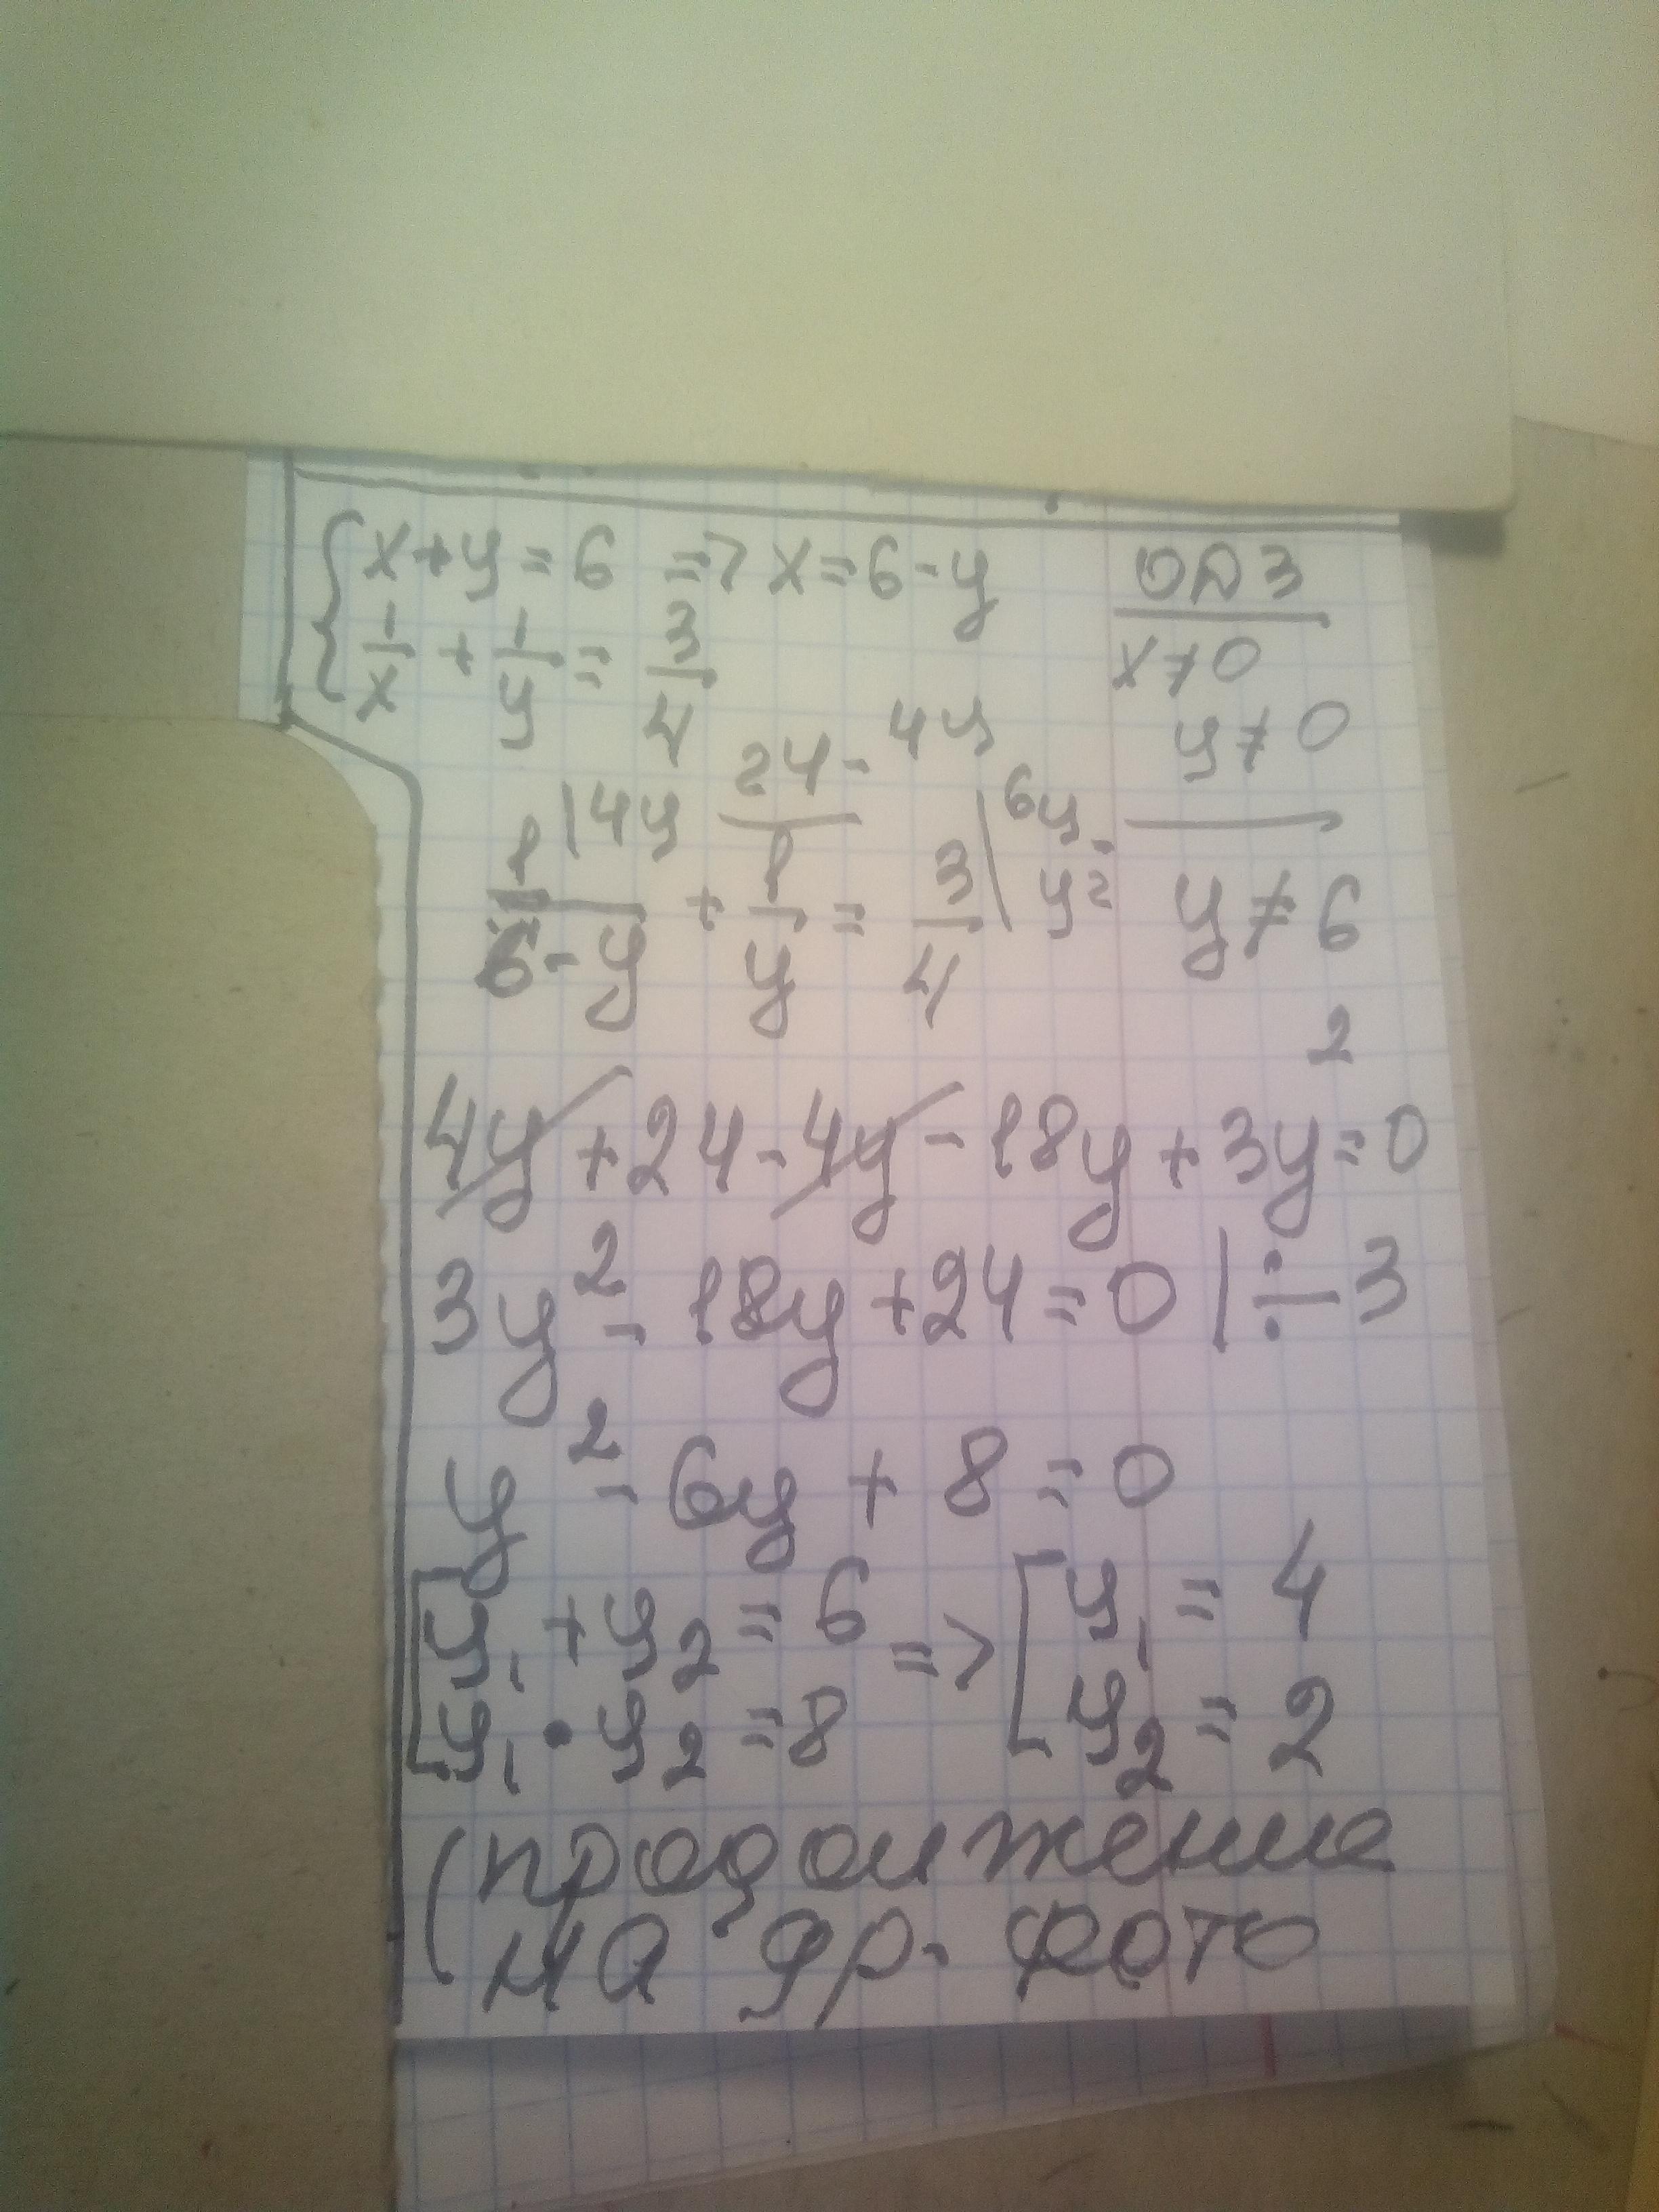 { x+y=6 => x=6-y
1/x + 1/y = 3/4
ОДЗ
x≠0
y≠0
y≠6
1/(6-y) |4y + 1/y |24-4y = 3/4 |6y-y²
4y+24-4y-18y+3y²=0
3y²-18y+24=0 |÷3
y²-6y+8=0
[ y₁+y₂=6 => [ y₁=4
y₁•y₂=8 y₂=2
(продолжение
на др. фото